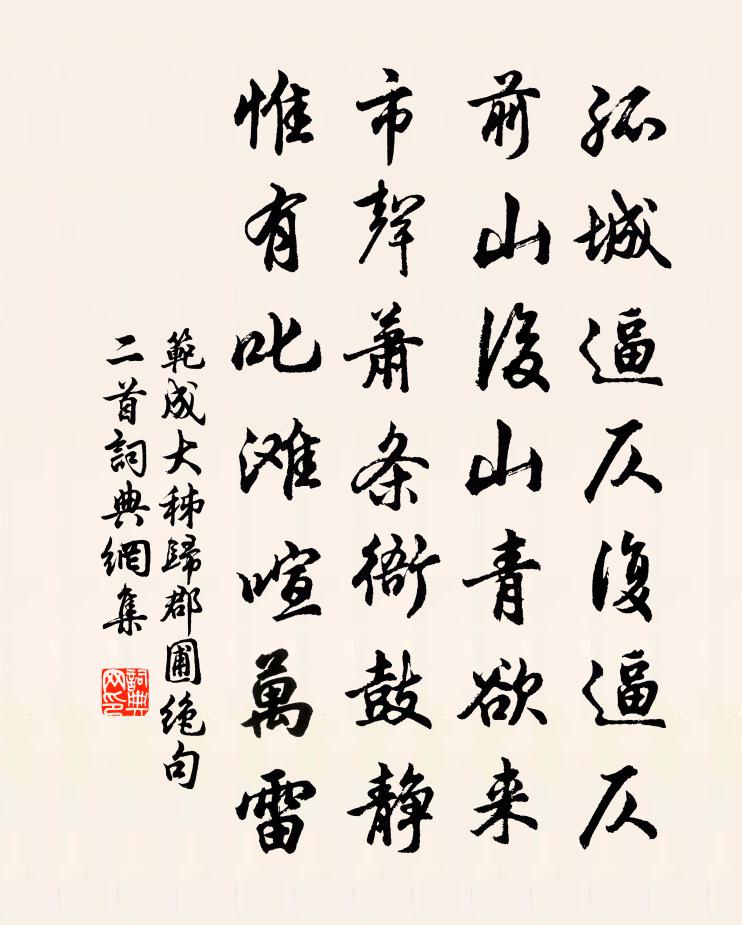 孤城逼仄復逼仄
前山後山青欲来
市聲蕭条衙鼓静
惟有叱滩喧萬雷
範成大秭歸郡圃绝句
二首詞典網集
詞典
网印